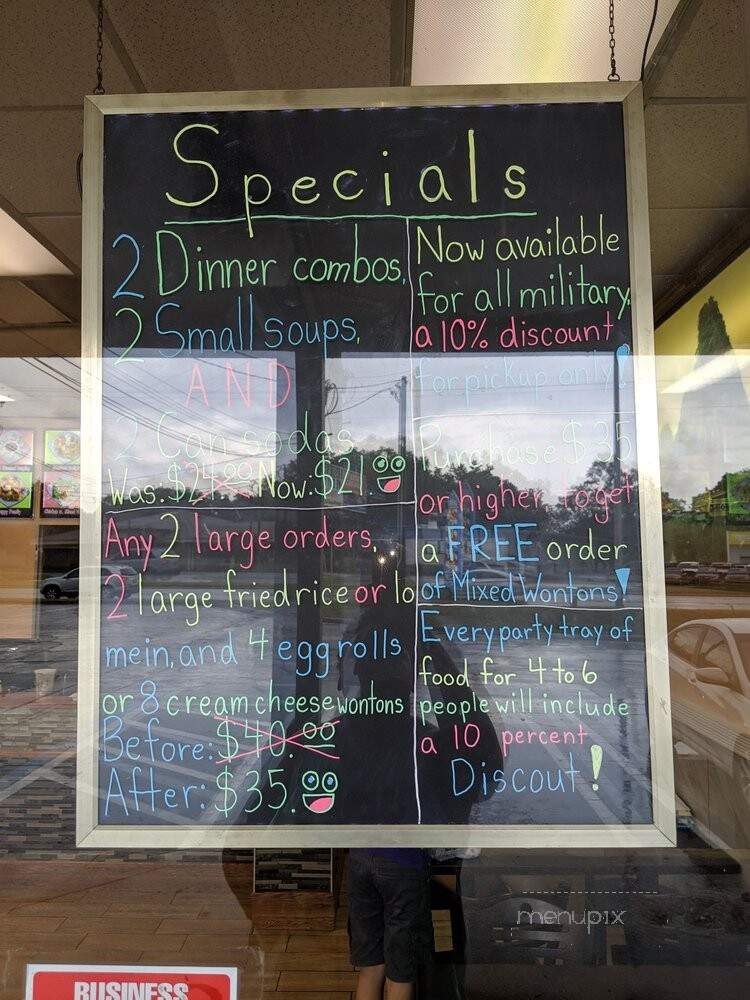 Specials
2 Dinner combos,
2 Small soups,
AND
2 Can sodas
Was: $24.00 Now: $21.00
Any 2 large orders,
2 large fried rice or lo
mein, and 4 egg rolls
or 8 cream cheese wontons
Before: $40.00
After: $35.00
Now available
for all military
a 10% discount
for pickup only!
Purchase $35
or higher to get
a FREE order
of Mixed Wontons!
Every party tray of
food for 4 to 6
people will include
a 10 percent
Discout!
menupix
BUSINESS